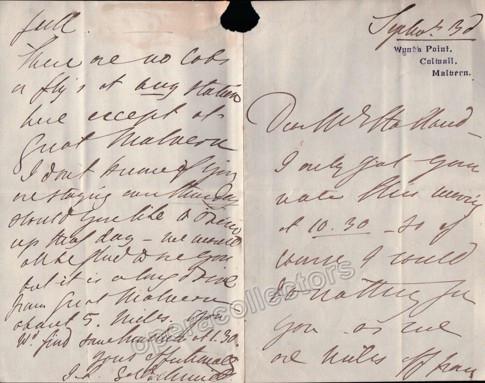 Septr. 3d
Wynd's Point,
Colwall,
Malvern.
Dear Mr Holland –
I only got your
note this morning
at 10.30 – so of
course I could
do nothing for
you as we
are miles off from
full.
There are no Cabs
or fly's at any station
here except at
Great Malvern
I don't know if you
are staying over Thursday
should you like to drive
up that day – we would
all be glad to see you
but it is a long drive
from Great Malvern
about 5. miles. You
wd. find some luncheon at 1.30.
Yours
operacollectors